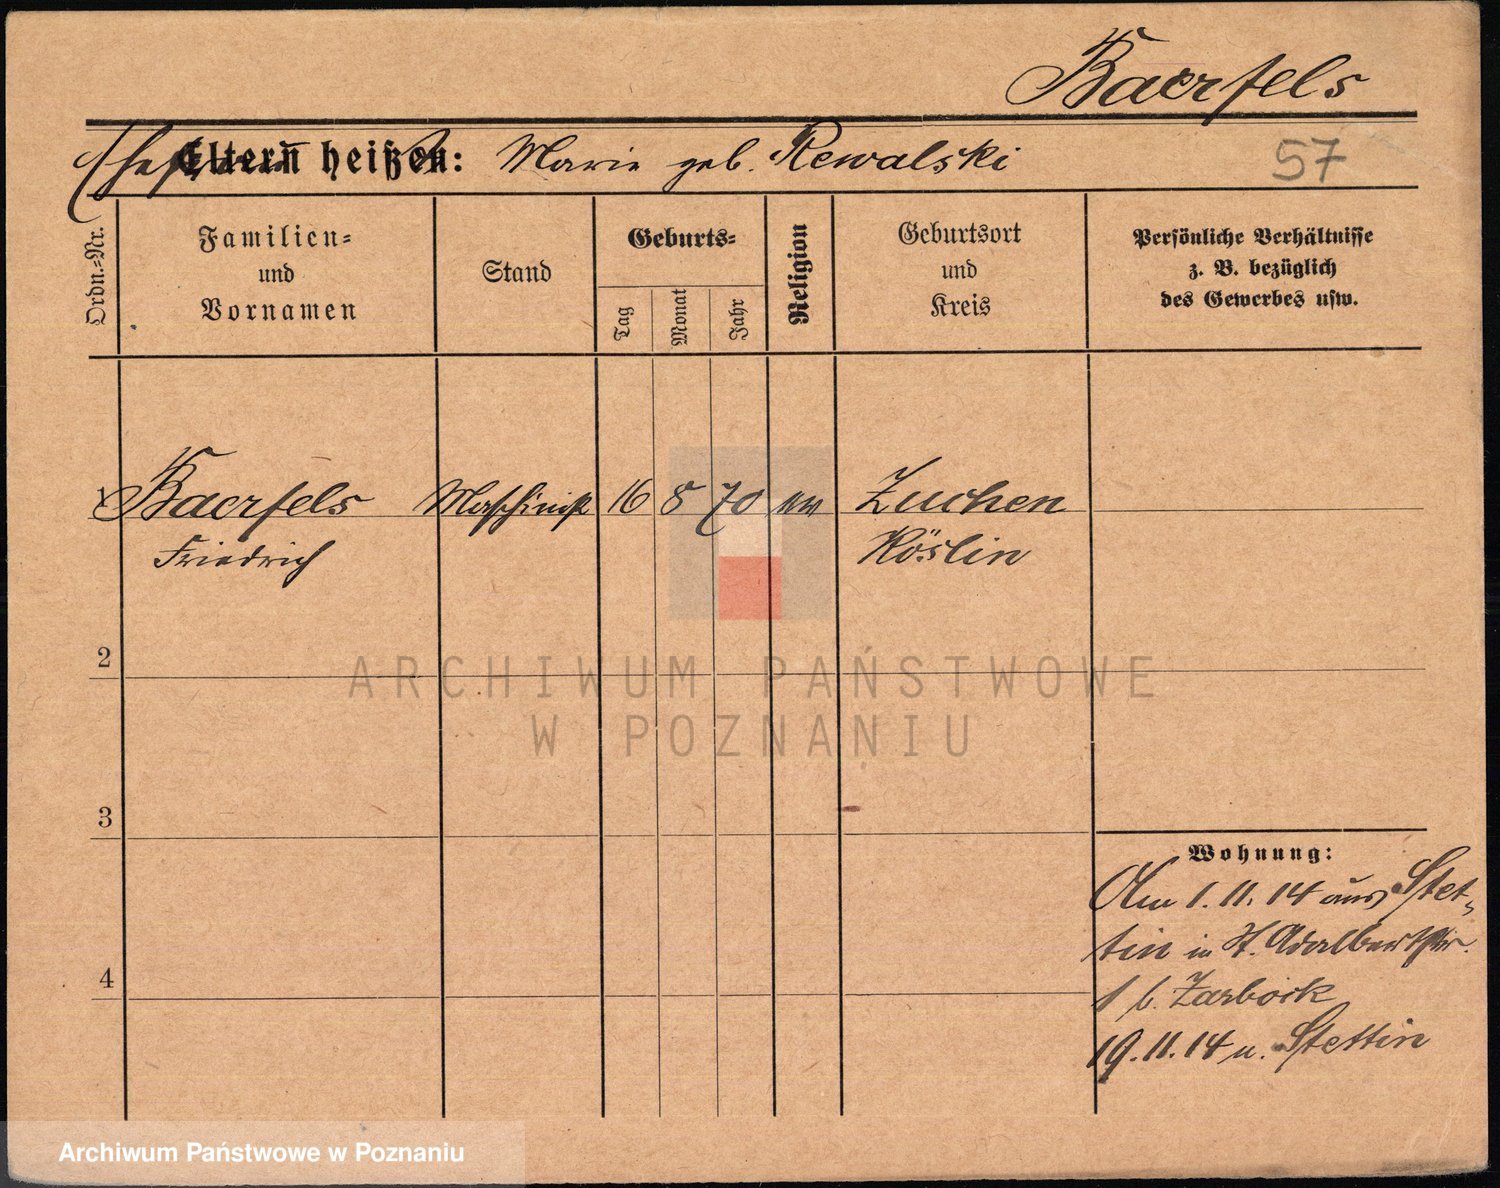 Baerfels
Ehefrau
Eltern heißen: Marie geb. Rewalski
57
Ordn.-Nr.
Familien-
und
Vornamen
Stand
Geburts-
Tag
Monat
Jahr
Religion
Geburtsort
und
Kreis
Persönliche Verhältnisse
z. B. bezüglich
des Gewerbes usw.
1 Baerfels Maschinist 16 8 70 Zuchen
Friedrich Köslin
2
ARCHIWUM PAŃSTWOWE
W POZNANIU
3
Wohnung:
1.11.14 aus Stet-
4 tin in St. Adalbertstr.
1 b. Zarbock
19.11.14 n. Stettin
Archiwum Państwowe w Poznaniu